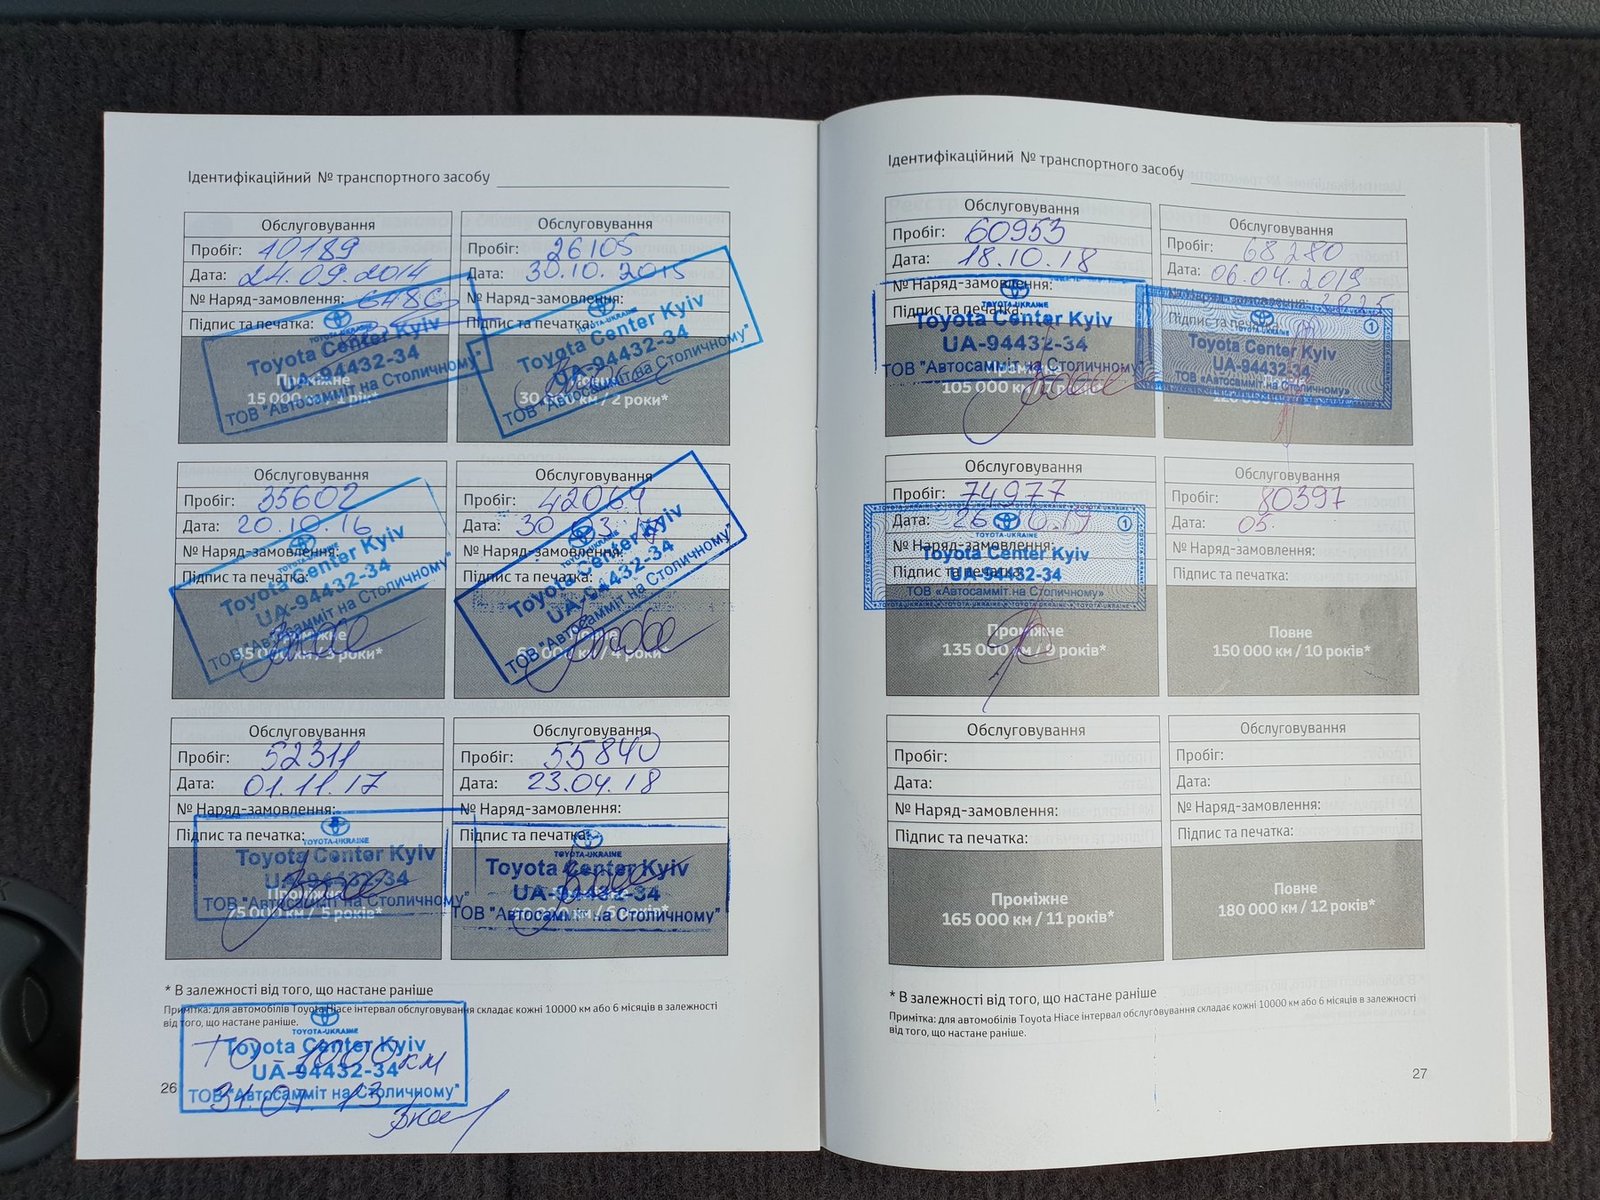 Ідентифікаційний № транспортного засобу
Обслуговування
Пробіг: 10189
Дата: 24.09.2014
№ Наряд-замовлення:
Підпис та печатка:
TOYOTA-UKRAINE
Toyota Center Kyiv
UA-94432-34
ТОВ "Автосамміт на Столичному"
Проміжне
15 000 км / 1 рік*
Обслуговування
Пробіг: 26105
Дата: 30.10.2015
№ Наряд-замовлення:
Підпис та печатка:
TOYOTA-UKRAINE
Toyota Center Kyiv
UA-94432-34
ТОВ "Автосамміт на Столичному"
Повне
30 000 км / 2 роки*
Обслуговування
Пробіг: 35602
Дата: 20.10.16
№ Наряд-замовлення:
Підпис та печатка:
TOYOTA-UKRAINE
Toyota Center Kyiv
UA-94432-34
ТОВ "Автосамміт на Столичному"
Проміжне
45 000 км / 3 роки*
Обслуговування
Пробіг: 42064
Дата: 30.03.17
№ Наряд-замовлення:
Підпис та печатка:
TOYOTA-UKRAINE
Toyota Center Kyiv
UA-94432-34
ТОВ "Автосамміт на Столичному"
Повне
км / 4 роки*
Обслуговування
Пробіг: 52311
Дата: 01.11.17
№ Наряд-замовлення:
Підпис та печатка:
TOYOTA-UKRAINE
Toyota Center Kyiv
UA-94432-34
ТОВ "Автосамміт на Столичному"
Проміжне
75 000 км / 5 років*
Обслуговування
Пробіг: 55840
Дата: 23.04.18
№ Наряд-замовлення:
Підпис та печатка:
TOYOTA-UKRAINE
Toyota Center Kyiv
UA-94432-34
ТОВ "Автосамміт на Столичному"
км / 6 років*
* В залежності від того, що настане раніше
Примітка: для автомобілів Toyota Hiace інтервал обслуговування складає кожні 10000 км або 6 місяців в залежності
від того, що настане раніше.
TOYOTA-UKRAINE
Toyota Center Kyiv
ТО 1000 км
UA-94432-34
ТОВ "Автосамміт на Столичному"
31.07.13
26
Ідентифікаційний № транспортного засобу
Обслуговування
Пробіг: 60953
Дата: 18.10.18
№ Наряд-замовлення:
Підпис та печатка:
TOYOTA-UKRAINE
Toyota Center Kyiv
UA-94432-34
ТОВ "Автосамміт на Столичному"
Проміжне
105 000 км / 7 років*
Обслуговування
Пробіг: 68280
Дата: 06.04.2019
№ Наряд-замовлення:
Підпис та печатка:
TOYOTA-UKRAINE
1
Toyota Center Kyiv
UA-94432-34
ТОВ «Автосамміт на Столичному»
Обслуговування
Пробіг: 74977
Дата: 26.10.19
1
№ Наряд-замовлення:
Підпис та печатка:
TOYOTA-UKRAINE
Toyota Center Kyiv
UA-94432-34
ТОВ «Автосамміт на Столичному»
Проміжне
135 000 км / 9 років*
Обслуговування
Пробіг: 80397
Дата: 05.
№ Наряд-замовлення:
Підпис та печатка:
Повне
150 000 км / 10 років*
Обслуговування
Пробіг:
Дата:
№ Наряд-замовлення:
Підпис та печатка:
Проміжне
165 000 км / 11 років*
Обслуговування
Пробіг:
Дата:
№ Наряд-замовлення:
Підпис та печатка:
Повне
180 000 км / 12 років*
* В залежності від того, що настане раніше
Примітка: для автомобілів Toyota Hiace інтервал обслуговування складає кожні 10000 км або 6 місяців в залежності
від того, що настане раніше.
27